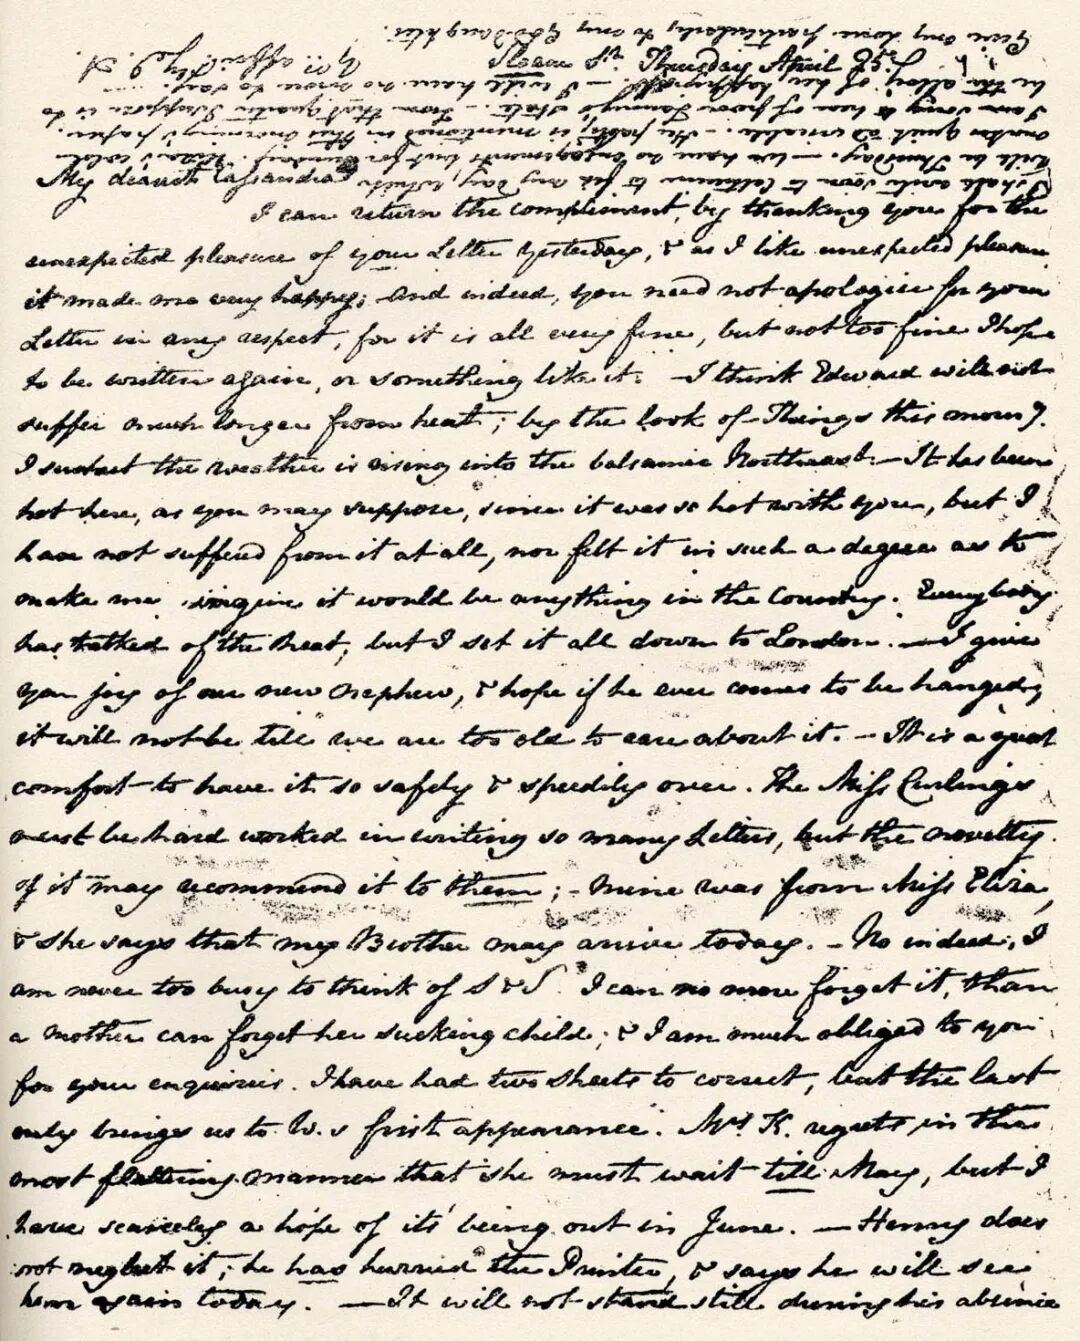 Sloane St. Thursday April 25
My dearest Cassandra
I can return the compliment by thanking you for the
unexpected pleasure of your Letter yesterday, & as I like unexpected pleasure
it made me very happy; And indeed, you need not apologise for your
Letter in any respect, for it is all very fine, but not too fine I hope
to be written again, or something like it. — I think Edward will not
suffer much longer from heat; by the look of Things this morng.
I suspect the weather is rising into the balsamic Northeast. — It has been
hot here, as you may suppose, since it was so hot with you, but I
have not suffered from it at all, nor felt it in such a degree as to
make me imagine it would be anything in the Country. Everybody
has talked of the heat, but I set it all down to London. — I give
you joy of our new nephew, & hope if he ever comes to be hanged,
it will not be till we are too old to care about it. — It is a great
comfort to have it so safely & speedily over. The Miss Curlings
must be hard worked in writing so many Letters, but the novelty
of it may recommend it to them; — mine was from Miss Eliza,
& she says that my Brother may arrive today. — No indeed, I
am never too busy to think of S & S. I can no more forget it, than
a mother can forget her sucking child; & I am much obliged to you
for your enquiries. I have had two sheets to correct, but the last
only brings us to W.s first appearance. Mrs. K. regrets in the
most flattering manner that she must wait till May, but I
have scarcely a hope of its being out in June. — Henry does
not neglect it; he has hurried the Printer, & says he will see
him again today. — It will not stand still during his absence
I shall write soon to Catherine to fix my day, which
will be Thursday. — We have no engagements but for Sunday. Eliza's cold
makes quiet advisable. — Her party is mentioned in this morning's paper.
I am sorry to hear of poor Fanny's state. — From that quarter I suppose is to
be the alloy of her happiness. — I will have no more to say.
Yrs. affecly. J. A.
Give my love particularly to my God-Daughter.